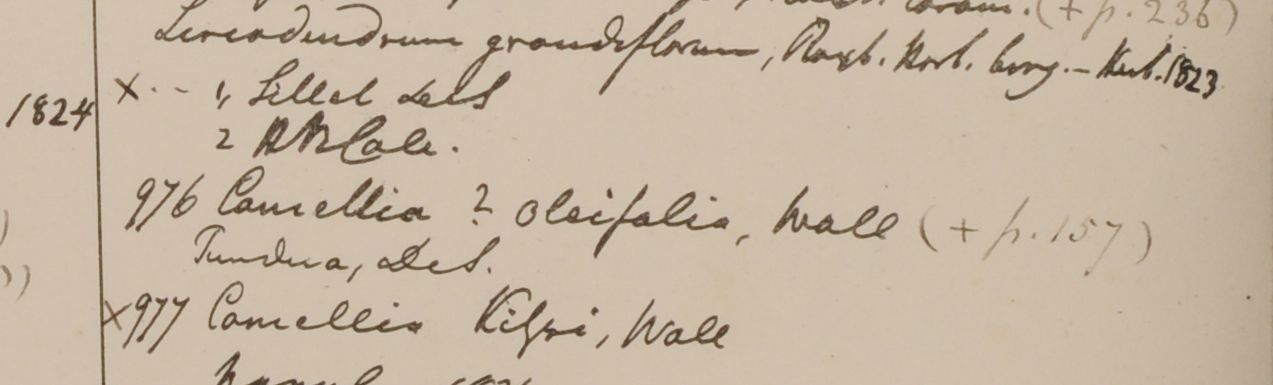 (+ p. 236)
Liriodendrum grandiflorum, Roxb. Hort. beng. – Herb. 1823
1824 × . . – 1, Sillet DeS
2 HBCalc.
976 Camellia ? oleifolia, Wall (+ p. 157)
Tundua, DeS.
×977 Camellia Kifsi, Wall